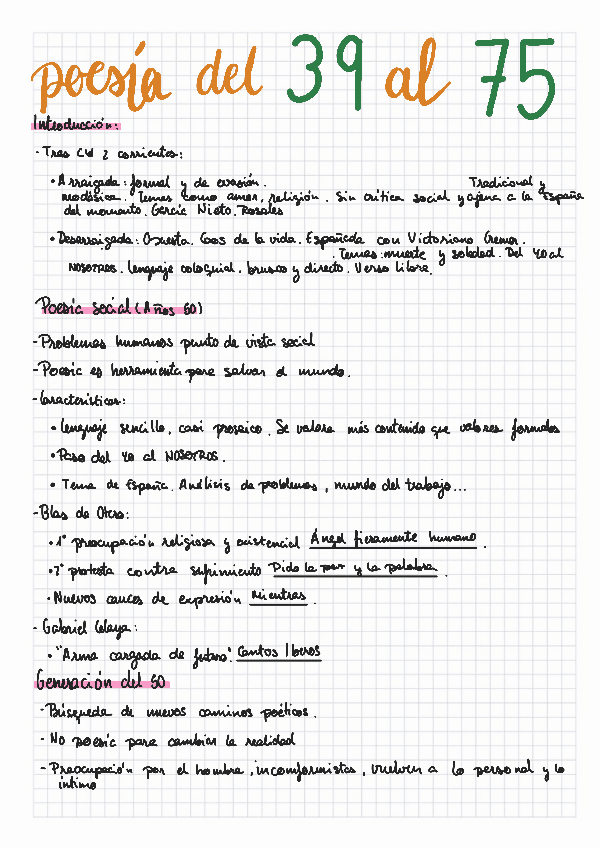 poesía del 39 al 75
Introducción:
- Tras CW 2 corrientes:
• Arraigada: formal y de evasión. Tradicional y
neoclásica. Temas como amor, religión. Sin crítica social y ajena a la España
del momento. García Nieto. Rosales
• Desarraigada: Opuesta. Caos de la vida. Españada con Victoriano Cremer.
. Temas: muerte y soledad. Del YO al
NOSOTROS. lenguaje coloquial, brusco y directo. Verso libre.
Poesía social (Años 50)
- Problemas humanos punto de vista social
- Poesía es herramienta para salvar el mundo.
- Características:
• Lenguaje sencillo, casi prosaico. Se valora más contenido que valores formales
• Paso del yo al NOSOTROS.
• Tema de España. Análisis de problemas, mundo del trabajo...
- Blas de Otero:
• 1° preocupación religiosa y existencial Ángel fieramente humano.
• 2° protesta contra sufrimiento Pido la paz y la palabra.
• Nuevos cauces de expresión Mientras.
- Gabriel Celaya:
• "Arma cargada de futuro". Cantos Iberos
Generación del 50
- Búsqueda de nuevos caminos poéticos.
- No poesía para cambiar la realidad
- Preocupación por el hombre, incomformistas, vuelven a lo personal y lo
íntimo